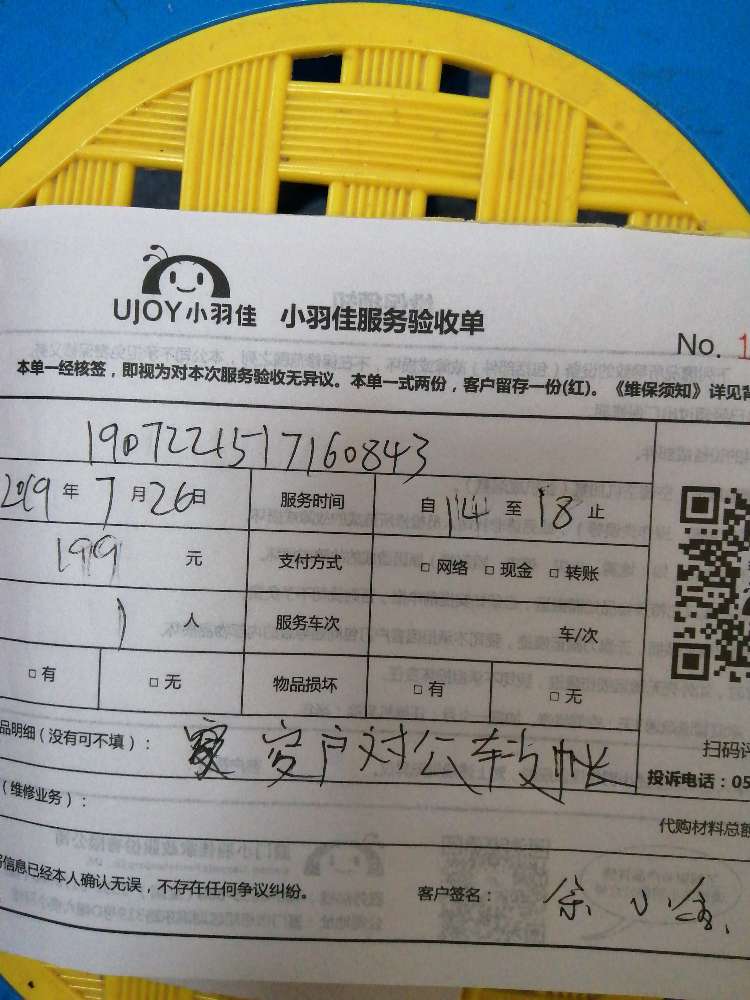 UJOY小羽佳 小羽佳服务验收单
No. 1
本单一经核签，即视为对本次服务验收无异议。本单一式两份，客户留存一份(红)。《维保须知》详见背
1907221517160843
2019 年 7 月 26 日 服务时间 自 14 至 18 止
199 元 支付方式 □ 网络 □ 现金 □ 转账
1 人 服务车次 车/次
□ 有 □ 无 物品损坏 □ 有 □ 无
品明细（没有可不填）： 客户对公转帐
扫码评
投诉电话：05
（维修业务）：
代购材料总额
信息已经本人确认无误，不存在任何争议纠纷。
客户签名： 余小